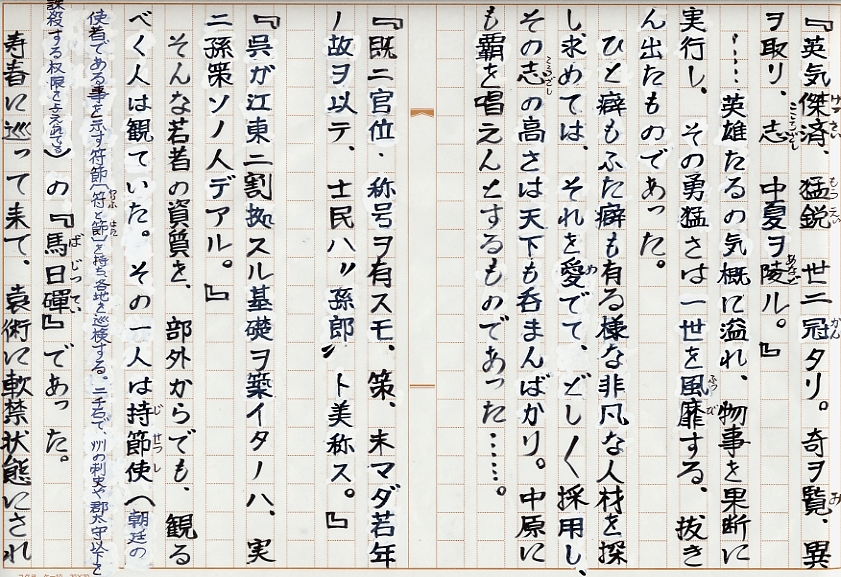 『英気傑済、猛鋭 世ニ冠タリ。奇ヲ覧、異
ヲ取リ、志 中夏ヲ陵ル。』
……英雄たるの気概に溢れ、物事を果断に
実行し、その勇猛さは一世を風靡する、抜き
ん出たものであった。
ひと癖もふた癖も有る様な非凡な人材を探
し求めては、それを愛でて、どしどし採用し、
その志の高さは天下も呑まんばかり。中原に
も覇を唱えんとするものであった……。
『既ニ官位・称号ヲ有スモ、策、未マダ若年
ノ故ヲ以テ、士民ハ〃孫郎〃ト美称ス。』
『呉が江東ニ割拠スル基礎ヲ築イタノハ、実
ニ孫策ソノ人デアル。』
そんな若者の資質を、部外からでも、観る
べく人は観ていた。その一人は持節使(朝廷の
使者である事を示す符節〔符と節〕を持ち、各地を巡検する。二千石で、州の刺史や郡太守以下を
誅殺する権限を与えれている)の『馬日磾』であった。
寿春に巡って来て、袁術に軟禁状態にされ